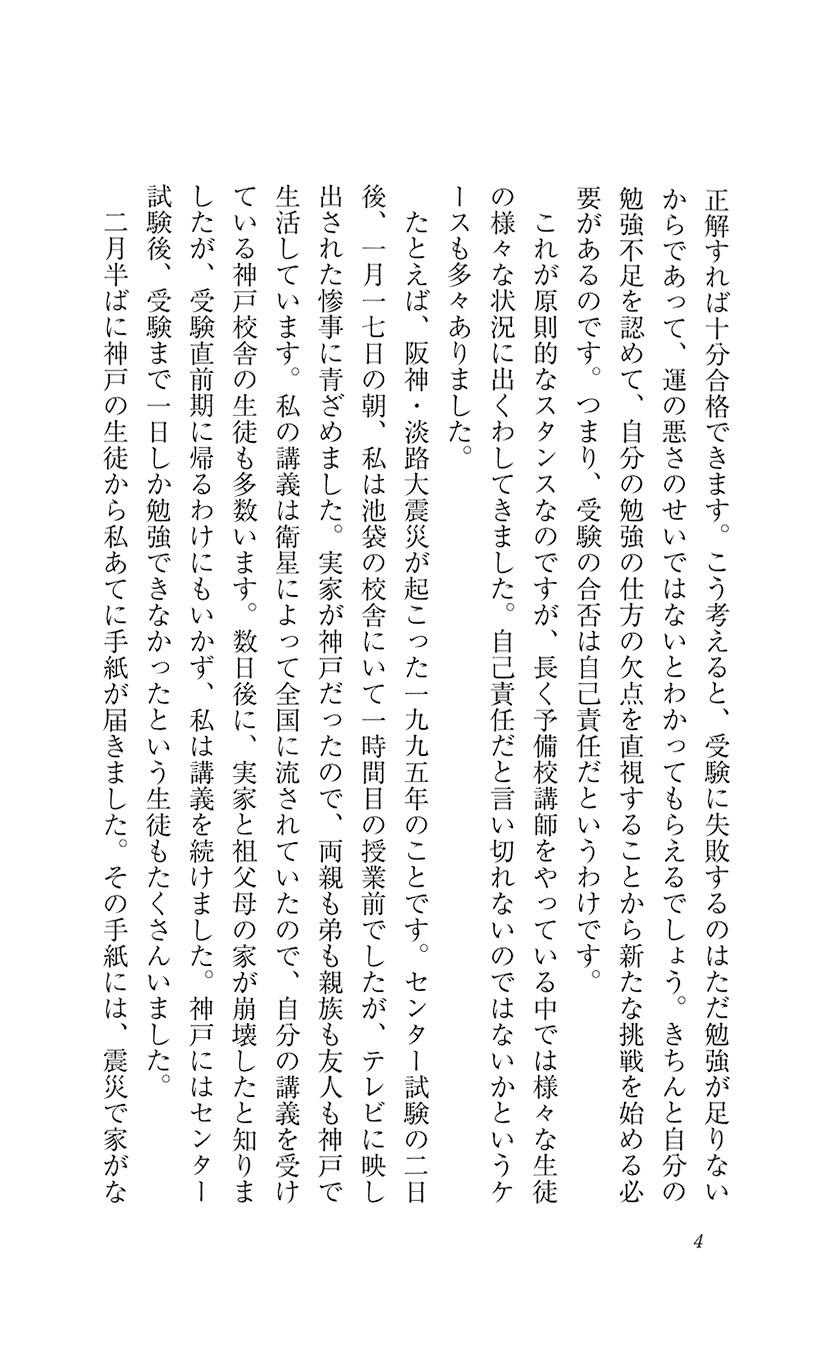 正解すれば十分合格できます。こう考えると、受験に失敗するのはただ勉強が足りない
からであって、運の悪さのせいではないとわかってもらえるでしょう。きちんと自分の
勉強不足を認めて、自分の勉強の仕方の欠点を直視することから新たな挑戦を始める必
要があるのです。つまり、受験の合否は自己責任だというわけです。
これが原則的なスタンスなのですが、長く予備校講師をやっている中では様々な生徒
の様々な状況に出くわしてきました。自己責任だと言い切れないのではないかというケ
ースも多々ありました。
たとえば、阪神・淡路大震災が起こった一九九五年のことです。センター試験の二日
後、一月一七日の朝、私は池袋の校舎にいて一時間目の授業前でしたが、テレビに映し
出された惨事に青ざめました。実家が神戸だったので、両親も弟も親族も友人も神戸で
生活しています。私の講義は衛星によって全国に流されていたので、自分の講義を受け
ている神戸校舎の生徒も多数います。数日後に、実家と祖父母の家が崩壊したと知りま
したが、受験直前期に帰るわけにもいかず、私は講義を続けました。神戸にはセンター
試験後、受験まで一日しか勉強できなかったという生徒もたくさんいました。
二月半ばに神戸の生徒から私あてに手紙が届きました。その手紙には、震災で家がな
4